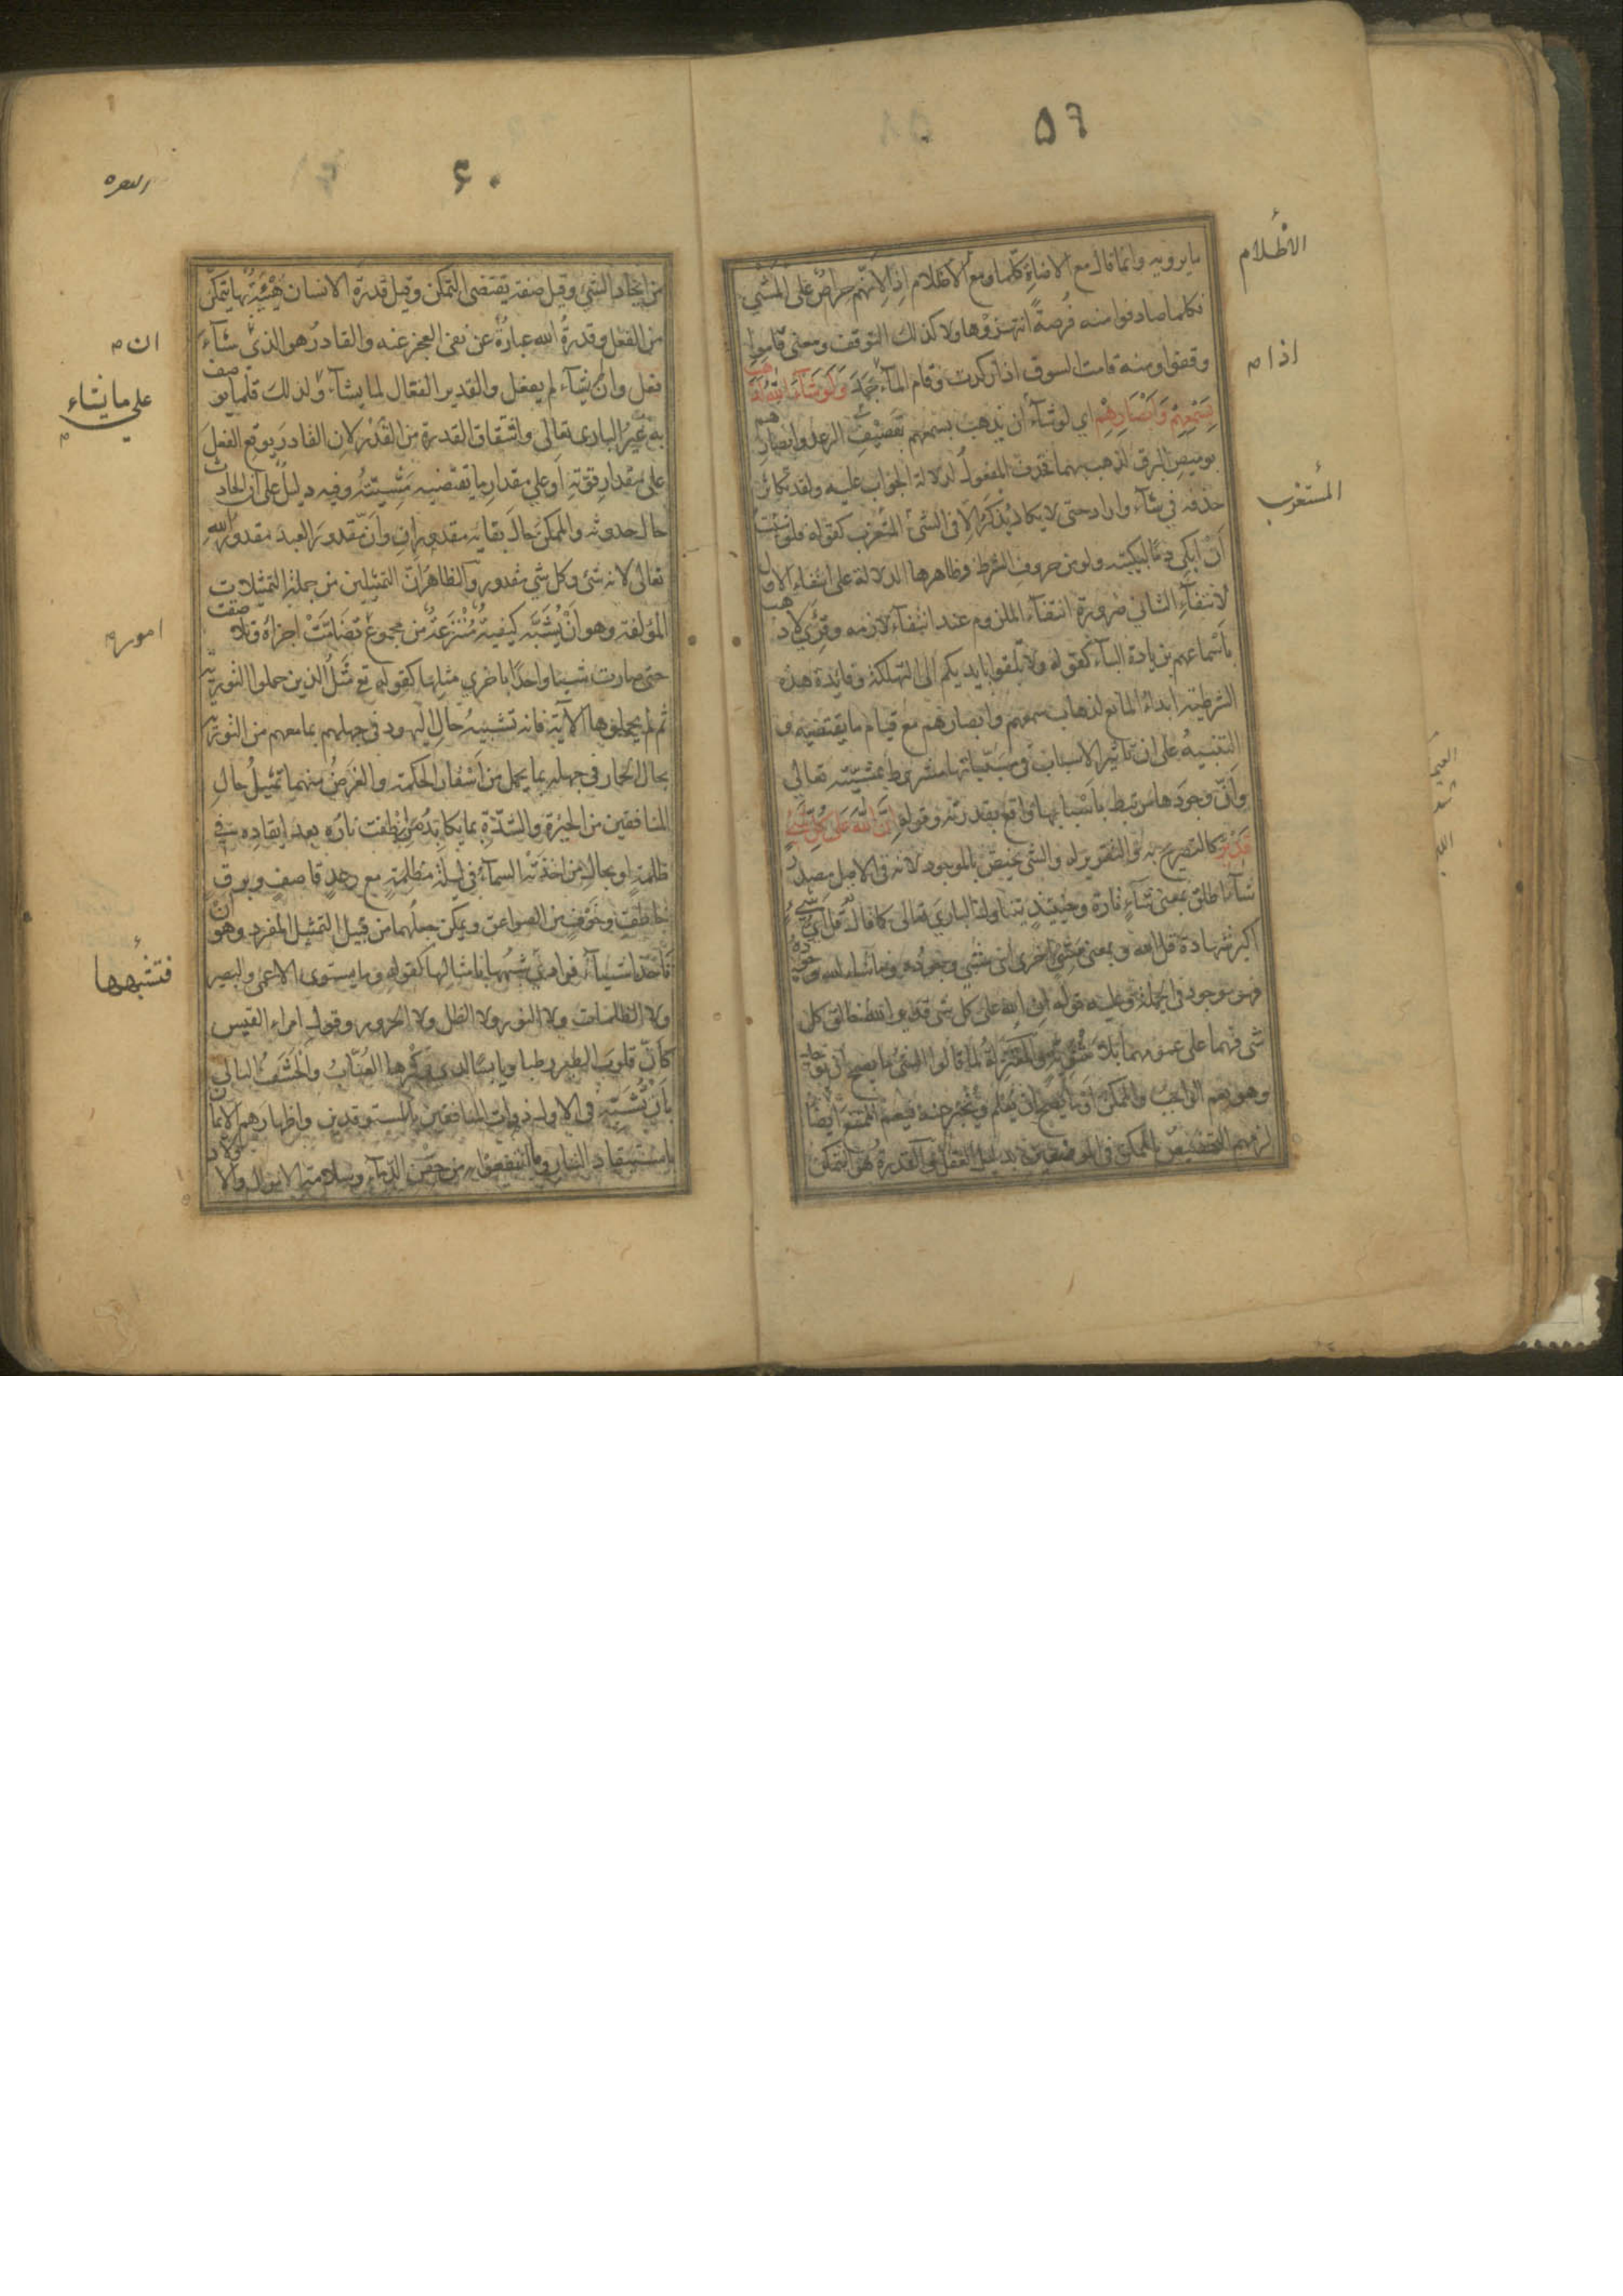 ٥٦
ما يرويه وانما قال مع الاضاءة كلما ومع الاظلام اذا لانهم حراص على المشي
فكلما صادفوا منه فرصة انتهزوها ولا كذلك التوقف ومعنى قاموا
وقفوا ومنه قامت السوق اذا ركدت وقام الماء جمد وَلَوْ شَآءَ اللهُ لَذَهَبَ
بِسَمْعِهِمْ وَاَبْصَارِهِمْ اي لو شاء ان يذهب بسمعهم بقصيف الرعد وابصارهم
بوميض البرق لذهب بهما فحذف المفعول لدلالة الجواب عليه ولقد تكاثر
حذفه في شاء واراد حتى لا يكاد يذكر الا في الشئ المستغرب كقوله فلو شئت
اَنْ ابكي دمًا لبكيته ولو من حروف الشرط وظاهرها الدلالة على انتفاء الاول
لانتفاء الثاني ضرورة انتفاء الملزوم عند انتفاء لازمه وقرئ لاذهب
باسماعهم بزيادة الباء كقوله ولا تلقوا بايديكم الى التهلكة وفائدة هذه
الشرطية ابداء المانع لذهاب سمعهم وابصارهم مع قيام ما يقتضيه و
التنبيه على ان تاثير الاسباب في مسبباتها مشروط بمشيته تعالى
وانّ وجودها مرتبط باسبابها واقع بقدرته وقوله اِنَّ اللهَ عَلَى كُلِّ شَيْءٍ
قَدِيْرٌ كالتصريح به والتقرير له والشئ يختص بالموجود لانه في الاصل مصدر
شاء اطلق بمعنى شاء تارة وحينئذ يتناول الباري تعالى كما قال قل اي شئ
اكبر شهادة قل الله وبمعنى مشئ اخرى اي مشئ وجوده وما شاء الله وجوده
فهو موجود في الجملة وعليه قوله ان الله على كل شئ قدير الله خالق كل
شئ فهما على عمومهما بلا مثنوية والمعتزلة لما قالوا الشئ ما يصح ان يوجد
وهو يعم الواجب والممكن او ما يصح ان يعلم ويخبر عنه فيعم الممتنع ايضا
لزمهم التخصيص بالممكن في الموضعين بدليل العقل والقدرة هو التمكن
الاظلام
اذا م
المستغرب
٦٠
البقره
من ايجاد الشئ وقيل صفة يقتضى التمكن وقيل قدرة الانسان هيئة بها يتمكن
من الفعل وقدرة الله عبارة عن نفى العجز عنه والقادر هو الذي شاء
فعل وان يشاء لم يفعل والقدير الفعّال لما يشاء ولذلك قلما يوصف
به غير الباري تعالى واشتقاق القدرة من القدر لان القادر يوقع الفعل
على مقدار قوته او على مقدار ما يقتضيه مشيته وفيه دليل على ان الحادث
حال حدوثه والممكن حال بقايه مقدوران وانّ مقدور العبد مقدور الله
تعالى لانه شئ وكل شئ مقدور والظاهر انّ التمثيلين من جملة التمثيلات
المؤلفة وهو ان يشبه كيفية منتزعة من مجموع تضامّت اجزاؤه وتلاصقت
حتى صارت شيئا واحدا باخرى مثلها كقوله تع مثل الذين حملوا التورية
ثم لم يحملوها الآية فانه تشبيه حال اليهود في جهلهم بما معهم من التورية
بحال الحمار في جهله بما يحمل من اسفار الحكمة والغرض منهما تمثيل حال
المنافقين من الحيرة والشدّة بما يكابده من انطفت ناره بعد ايقاده في
ظلمة او بحال من اخذته السماء في ليلة مظلمة مع رعد قاصف وبرق
خاطف وخوف من الصواعق ويمكن جعلهما من قبيل التمثيل المفرد وهو ان
تاخذ اشياء فرادى شبهها بامثالها كقوله وما يستوى الاعمى والبصير
ولا الظلمات ولا النور ولا الظل ولا الحرور وقول امراء القيس
كانّ قلوب الطير رطبا ويابسًا لدى وكرها العنّاب والحشف البالي
بان تشبه في الاول ذوات المنافقين بالمستوقدين واظهارهم الايمان
باستيقاد النار وما انتفعوا به من حقن الدماء وسلامة الاموال والاولاد
ان م
على ما يشاء
م
امور م
فتشبهها